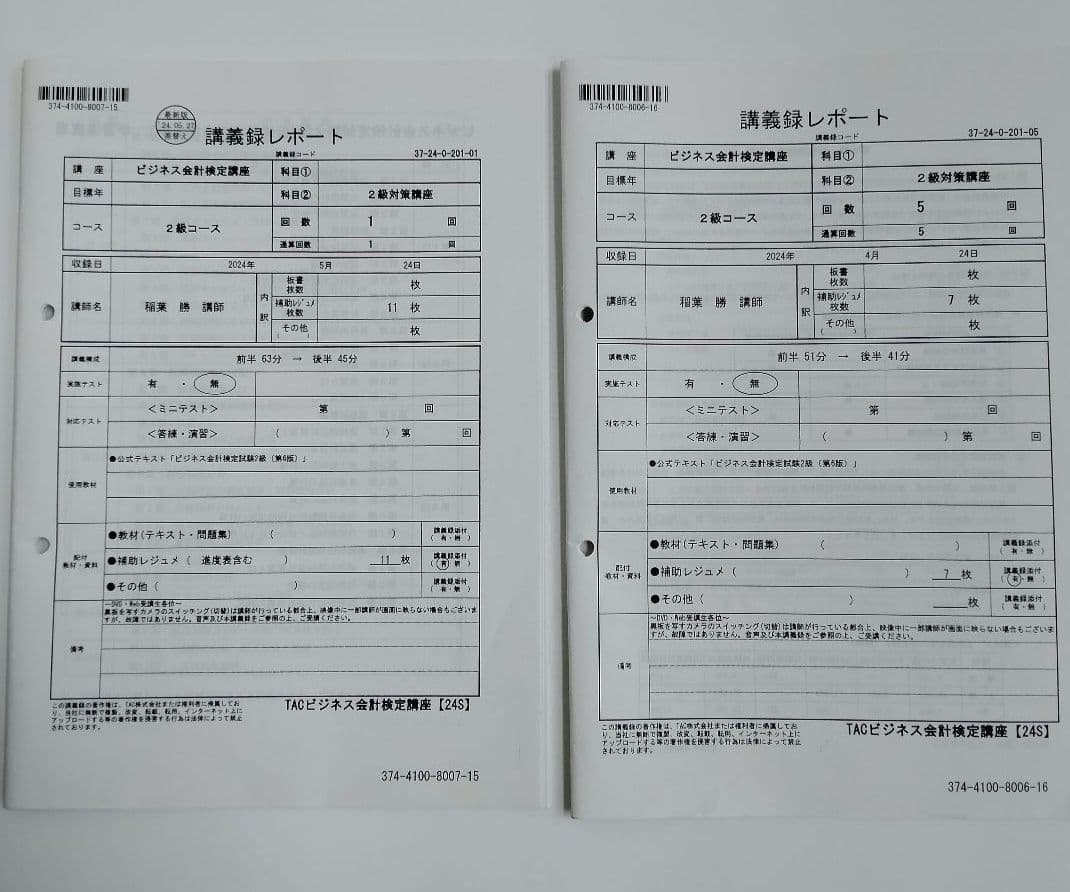 374-4100-8007-15
最新版
'24.05.27
差替え
講義録レポート
講義録コード
37-24-0-201-01
講 座 ビジネス会計検定講座 科目①
目標年 科目② 2級対策講座
コース 2級コース 回 数 1 回
通算回数 1 回
収録日 2024年 5月 24日
講師名 稲葉 勝 講師 内訳 板書枚数 枚
補助レジュメ枚数 11 枚
その他( ) 枚
講義構成 前半 63分 → 後半 45分
実施テスト 有 ・ 無
対応テスト <ミニテスト> 第 回
<答練・演習> ( ) 第 回
使用教材 ●公式テキスト「ビジネス会計検定試験2級(第6版)」
配付教材・資料 ●教材(テキスト・問題集) ( ) 講義録添付(有・無)
●補助レジュメ( 進度表含む ) 11 枚 講義録添付(有・無)
●その他( ) 講義録添付(有・無)
備考 ~DVD・Web受講生各位~
黒板を写すカメラのスイッチング(切替)は講師が行っている都合上、映像中に一部講師が画面に映らない場合もございま
すが、故障ではありません。音声及び本講義録をご参照の上、ご受講ください。
この講義録の著作権は、TAC株式会社または権利者に帰属してお
り、当社に無断で複製、改変、転載、転用、インターネット上に
アップロードする等の著作権を侵害する行為は法律によって禁止
されております。
TACビジネス会計検定講座【24S】
374-4100-8007-15
374-4100-8006-16
講義録レポート
講義録コード
37-24-0-201-05
講 座 ビジネス会計検定講座 科目①
目標年 科目② 2級対策講座
コース 2級コース 回 数 5 回
通算回数 5 回
収録日 2024年 4月 24日
講師名 稲葉 勝 講師 内訳 板書枚数 枚
補助レジュメ枚数 7 枚
その他( ) 枚
講義構成 前半 51分 → 後半 41分
実施テスト 有 ・ 無
対応テスト <ミニテスト> 第 回
<答練・演習> ( ) 第 回
使用教材 ●公式テキスト「ビジネス会計検定試験2級(第6版)」
配付教材・資料 ●教材(テキスト・問題集) ( ) 講義録添付(有・無)
●補助レジュメ( ) 7 枚 講義録添付(有・無)
●その他( ) 枚 講義録添付(有・無)
備考 ~DVD・Web受講生各位~
黒板を写すカメラのスイッチング(切替)は講師が行っている都合上、映像中に一部講師が画面に映らない場合もございま
すが、故障ではありません。音声及び本講義録をご参照の上、ご受講ください。
この講義録の著作権は、TAC株式会社または権利者に帰属してお
り、当社に無断で複製、改変、転載、転用、インターネット上に
アップロードする等の著作権を侵害する行為は法律によって禁止
されております。
TACビジネス会計検定講座【24S】
374-4100-8006-16